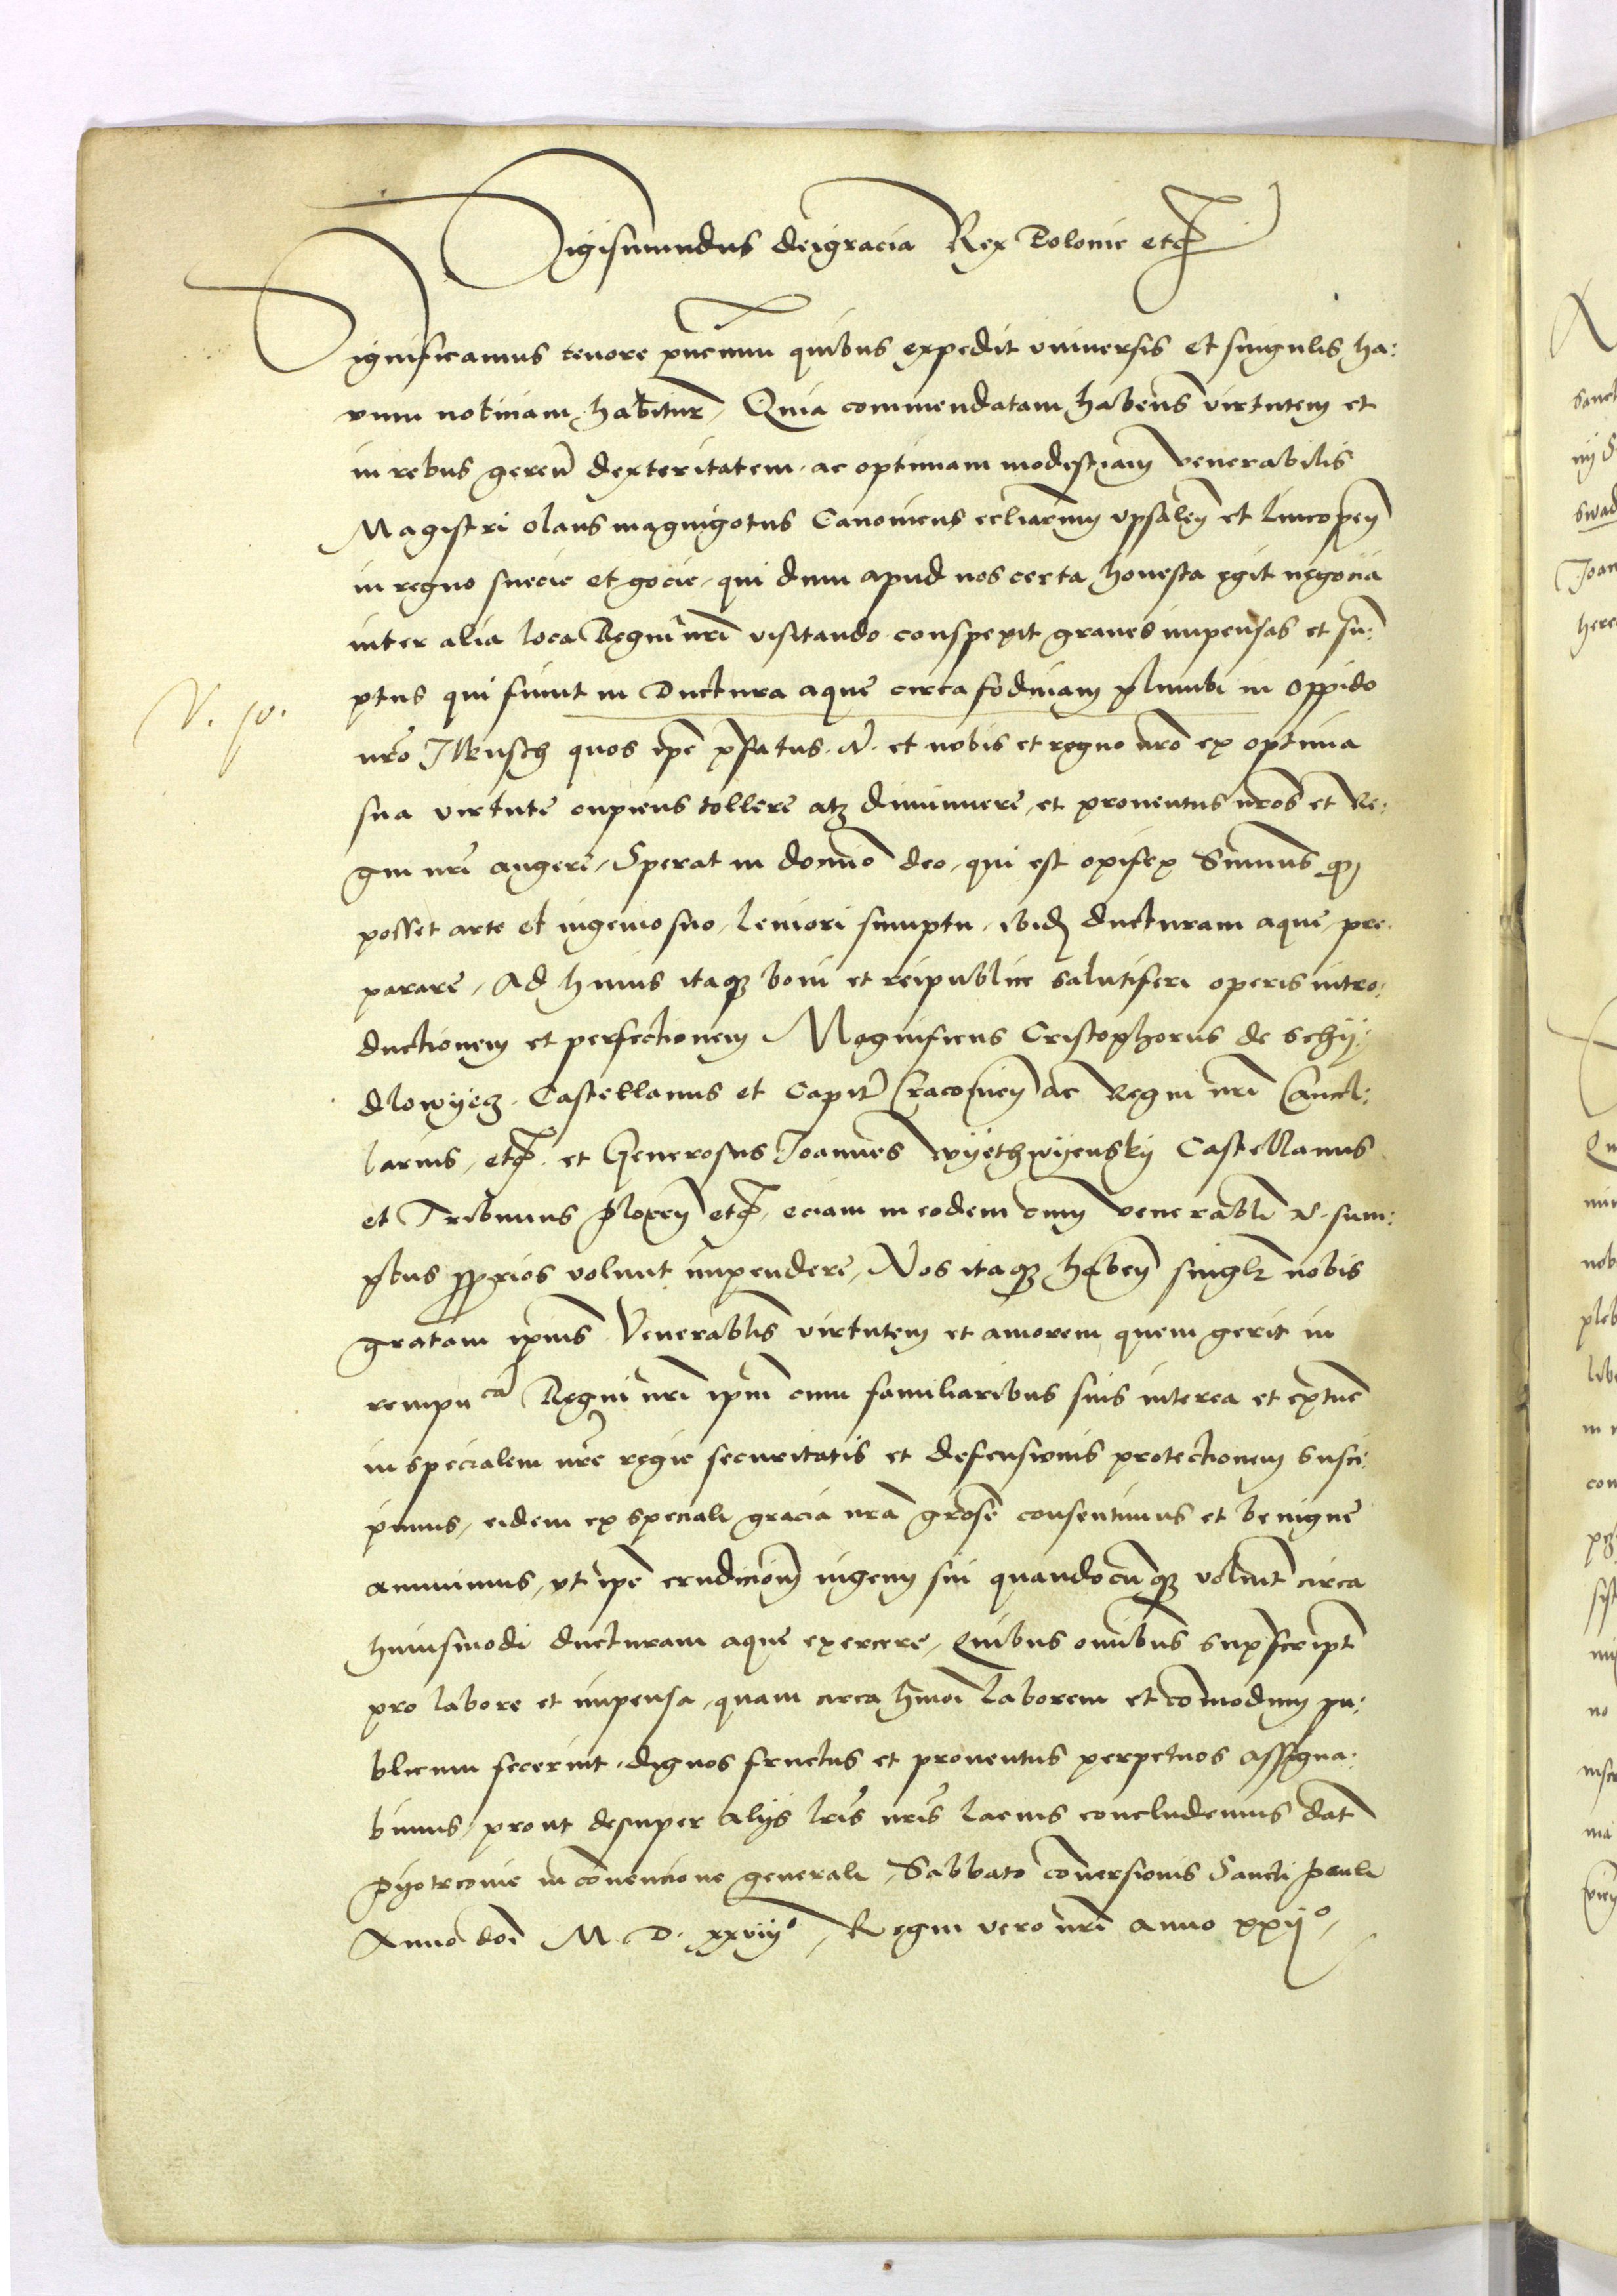 Sigismundus deigracia Rex Polonie etc
Significamus tenore pncium quibus expedit vniuersis et singulis ha:
rum noticiam habitur, Quia commendatam habens virtutem et
in rebus geren dexteritatem ac optimam modestiam venerabilis
Magistri olaus magnigotus Canonicus ecliarum vpsalen et lincopen
in regno suecie et gocie, qui dum apud nos certa honesta egit negocia
inter alia loca Regni nri visitando conspexit graues impensas et su:
ptus qui fiunt in Ductura aque circa fodinam plumbi in oppido
nro Ilkusch quos ipe pfatus N. et nobis et regno nro ex optima
sua virtute cupiens tollere atq diminuere, et prouentus nros et Re:
gni nri augere, Sperat in domino deo, qui est opifex Summus q
posset arte et ingenio suo, leuiori sumptu, ibid ducturam aque, pre
parare, Ad huius itaq boni et reipublice salutiferi operis intro:
ductionem et perfectionem Magnificus Cristophorus de schy:
dlowyecz Castellanus et Capit Cracouien ac Regni nri Cancel:
larius, etc. et Generosus Joannes wyethwyensky Castellanus
et Tribunus plocen etc, eciam in eodem cum venerabli N. sum:
ptus pprios volunt impendere, Nos itaq haben singlr nobis
gratam ipius Venerablis virtutem et amorem quem gerit in
rempu ca Regni nri ipm cum familiaribus suis interea et extunc
in specialem nre regie securitatis et defensionis protectionem susci:
pimus, eidem ex speciali gracia nra grose consentimus et benigne
annuimus, vt ipe erudicionem ingenij sui quandocunq voluit circa
huiusmodi ducturam aque exercere, Quibus omibus supscript
pro labore et impensa, quam circa hmoi laborem et comodum pu:
blicum fecerint, dignos fructus et prouentus perpetuos assigna:
bimus, prout desuper alijs lris nris lacius concludemus dat
pyotrcouie in conuencione generali, Sabbato conuersionis Sancti pauli
Anno doi M. D. xxviij°, Regni vero nri anno xxij°